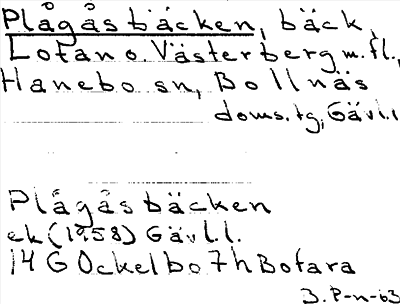 Plågåsbäcken, bäck,
Lotan o. Västerberg m.fl.,
Hanebo sn, Bollnäs
doms.tg, Gävl.l
Plågåsbäcken
ek (1958) Gävl.l.
14 G Ockelbo 7h Bofara
3. P-n-63